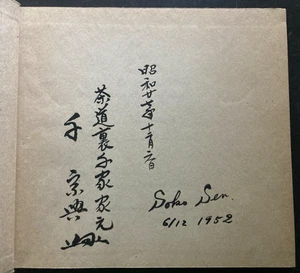 昭和廿七年十二月六日
茶道裏千家家元
千 宗興
Soko Sen.
6/12 1952